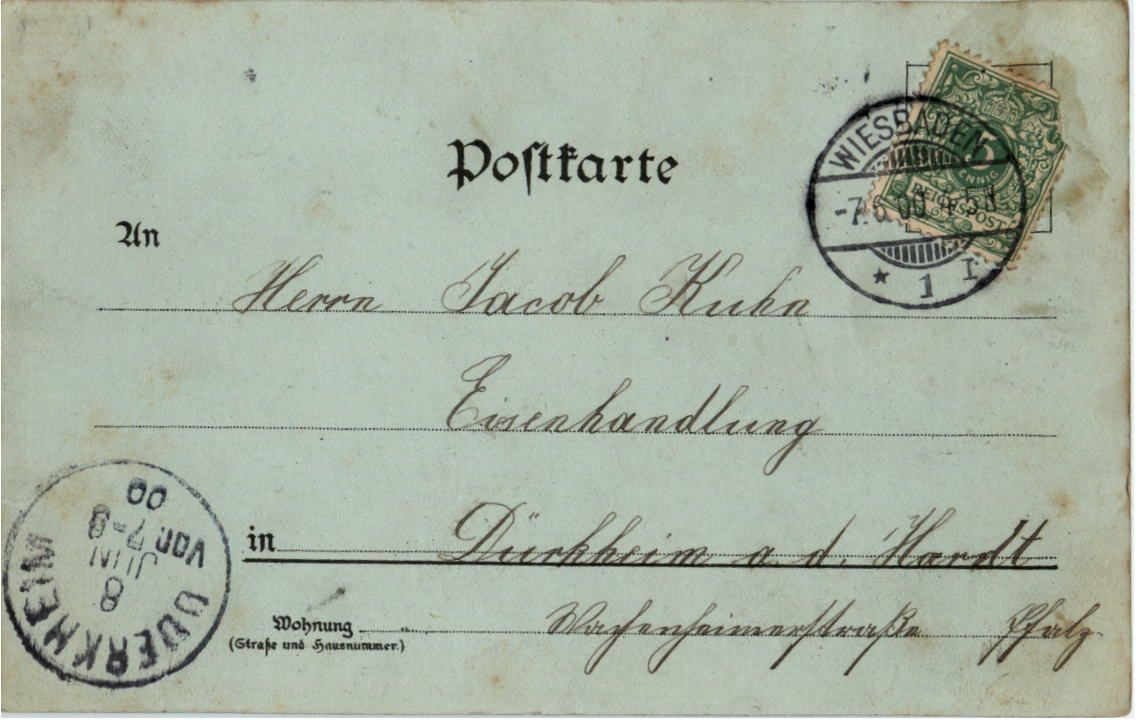 Postkarte
An
Herrn Jacob Kuhn
Eisenhandlung
in Dürkheim a. d. Hardt
Wohnung Wachenheimerstraße Pfalz
(Straße und Hausnummer.)
WIESBADEN
-7.6.00
* 1 I
5
PFENNIG
REICHSPOST
DUERKHEIM
8
JUN
VOR 7-8
00